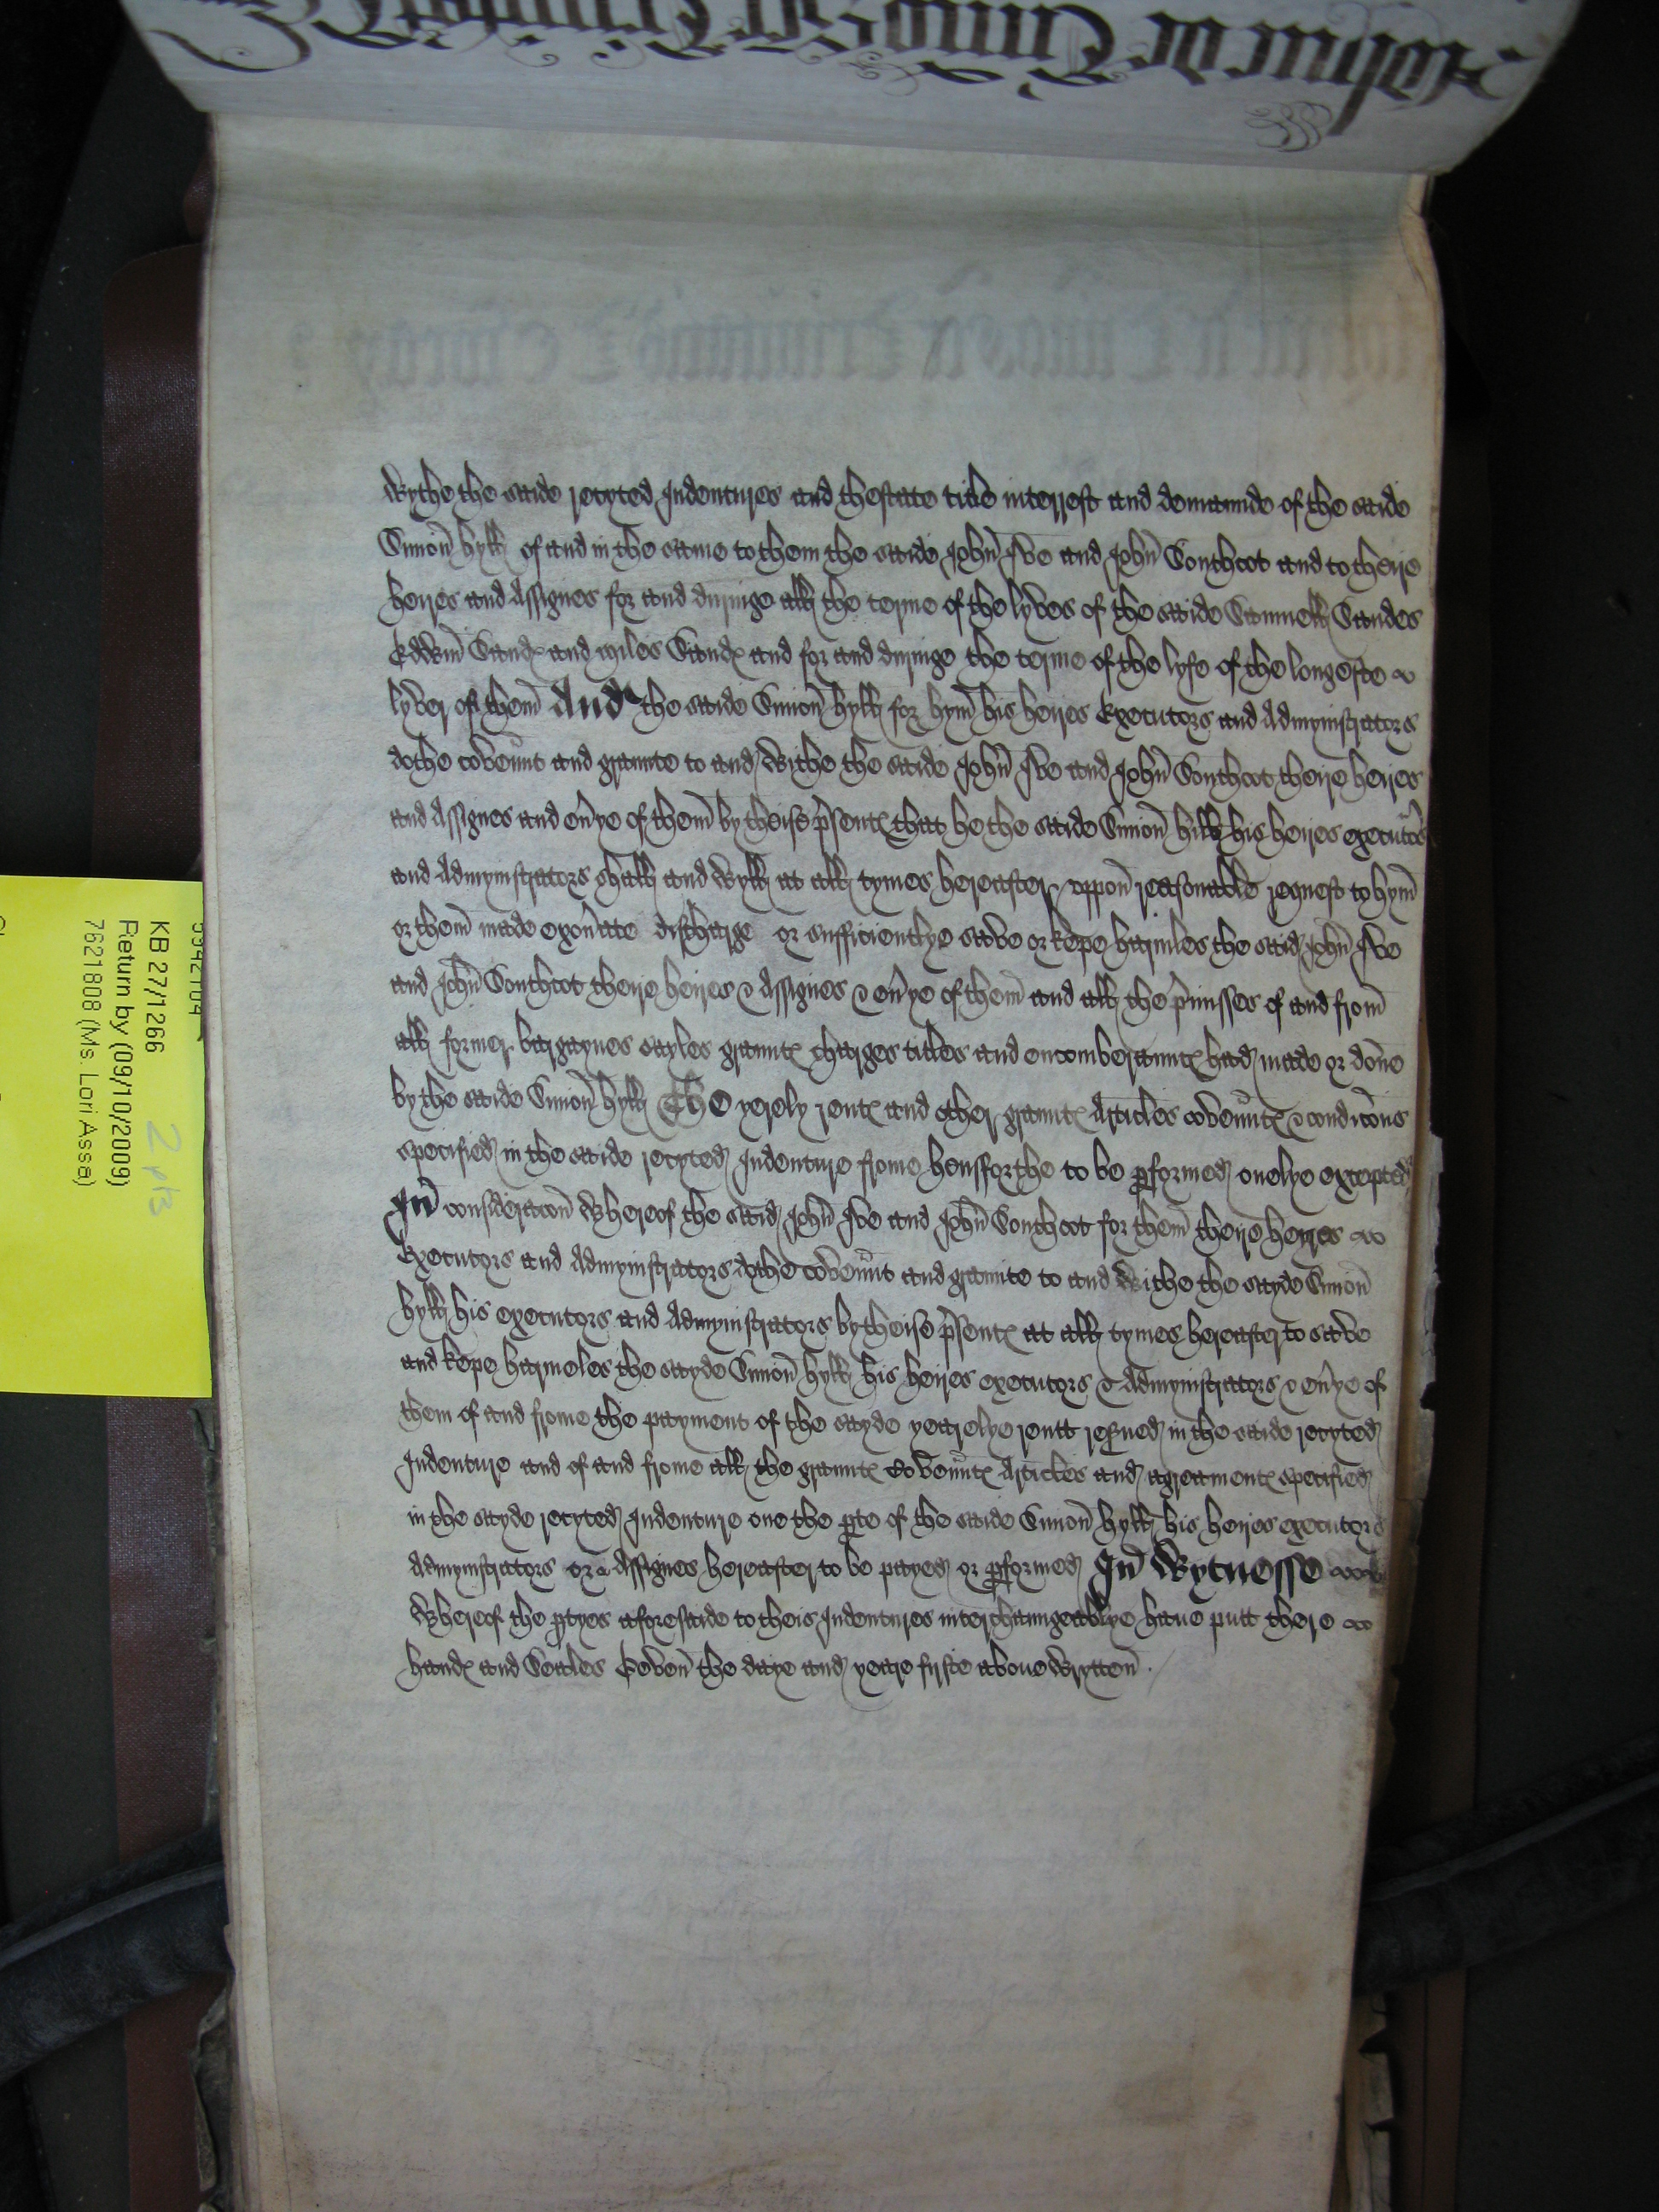 wythe the saide recyted Indentures and thestate title interrest and demaunde of the saide
Simon Hyll of and in the same to them the saide John Ive and John Southcot and to theire
heires and Assignes for and duringe all the terme of the lyves of the saide Samuell Sandes
Edwin Sandes and Miles Sandes and for and duringe the terme of the lyfe of the longeste
lyver of them And the saide Simon Hyll for hym his heires Executors and Admynistrators
dothe covennt and graunte to and withe the saide John Ive and John Southcot theire heires
and Assignes and eny'e of them by theise p'sentes that he the saide Simon Hill his heires executors
and Admynistrators shall and wyll at all tymes hereafter uppon reasonable request to hym
or them made exon'ate discharge or sufficientlye save or kepe harmles the said John Ive
and John Southcot theire heires & Assignes & eu'ye of them and all the p'misses of and from
all former bargaynes sayles grauntes charges titles and encomberauntes had made or done
by the saide Simon Hyll The yerely rentes and other grauntes Articles covenntes & condicons
specified in the saide recyted Indenture frome hensforthe to be pformed onelye excepted
In consideracon whereof the said John Ive and John Southcot for them theire heires
Executors and Admynistrators dothe covennt and graunte to and withe the sayde Simon
Hyll his executors and Admynistrators by theise p'sentes at all tymes hereafter to save
and kepe harmeles the sayde Simon Hyll his heires executors & Admynistrators & eu'ye of
them of and frome the payment of the sayde yearelye rentt res'ued in the saide recyted
Indenture and of and frome all the grauntes Covenntes Articles and agreamentes specified
in the sayde recyted Indenture one the pte of the saide Simon Hyll his heires executors
Admynistrators or Assignes hereafter to be payed or pformed In Wytnesse
whereof the ptyes aforesaide to theis Indentures interchaungeablye haue putt there
handes and Seales Yeoven the daye and yeare firste above wrytten
KB 27/1266
2 pts
Return by (09/10/2009)
7621808 (Ms. Lori Assa)